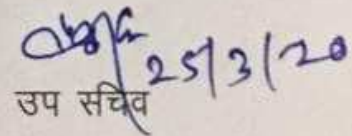 25/3/20
उप सचिव